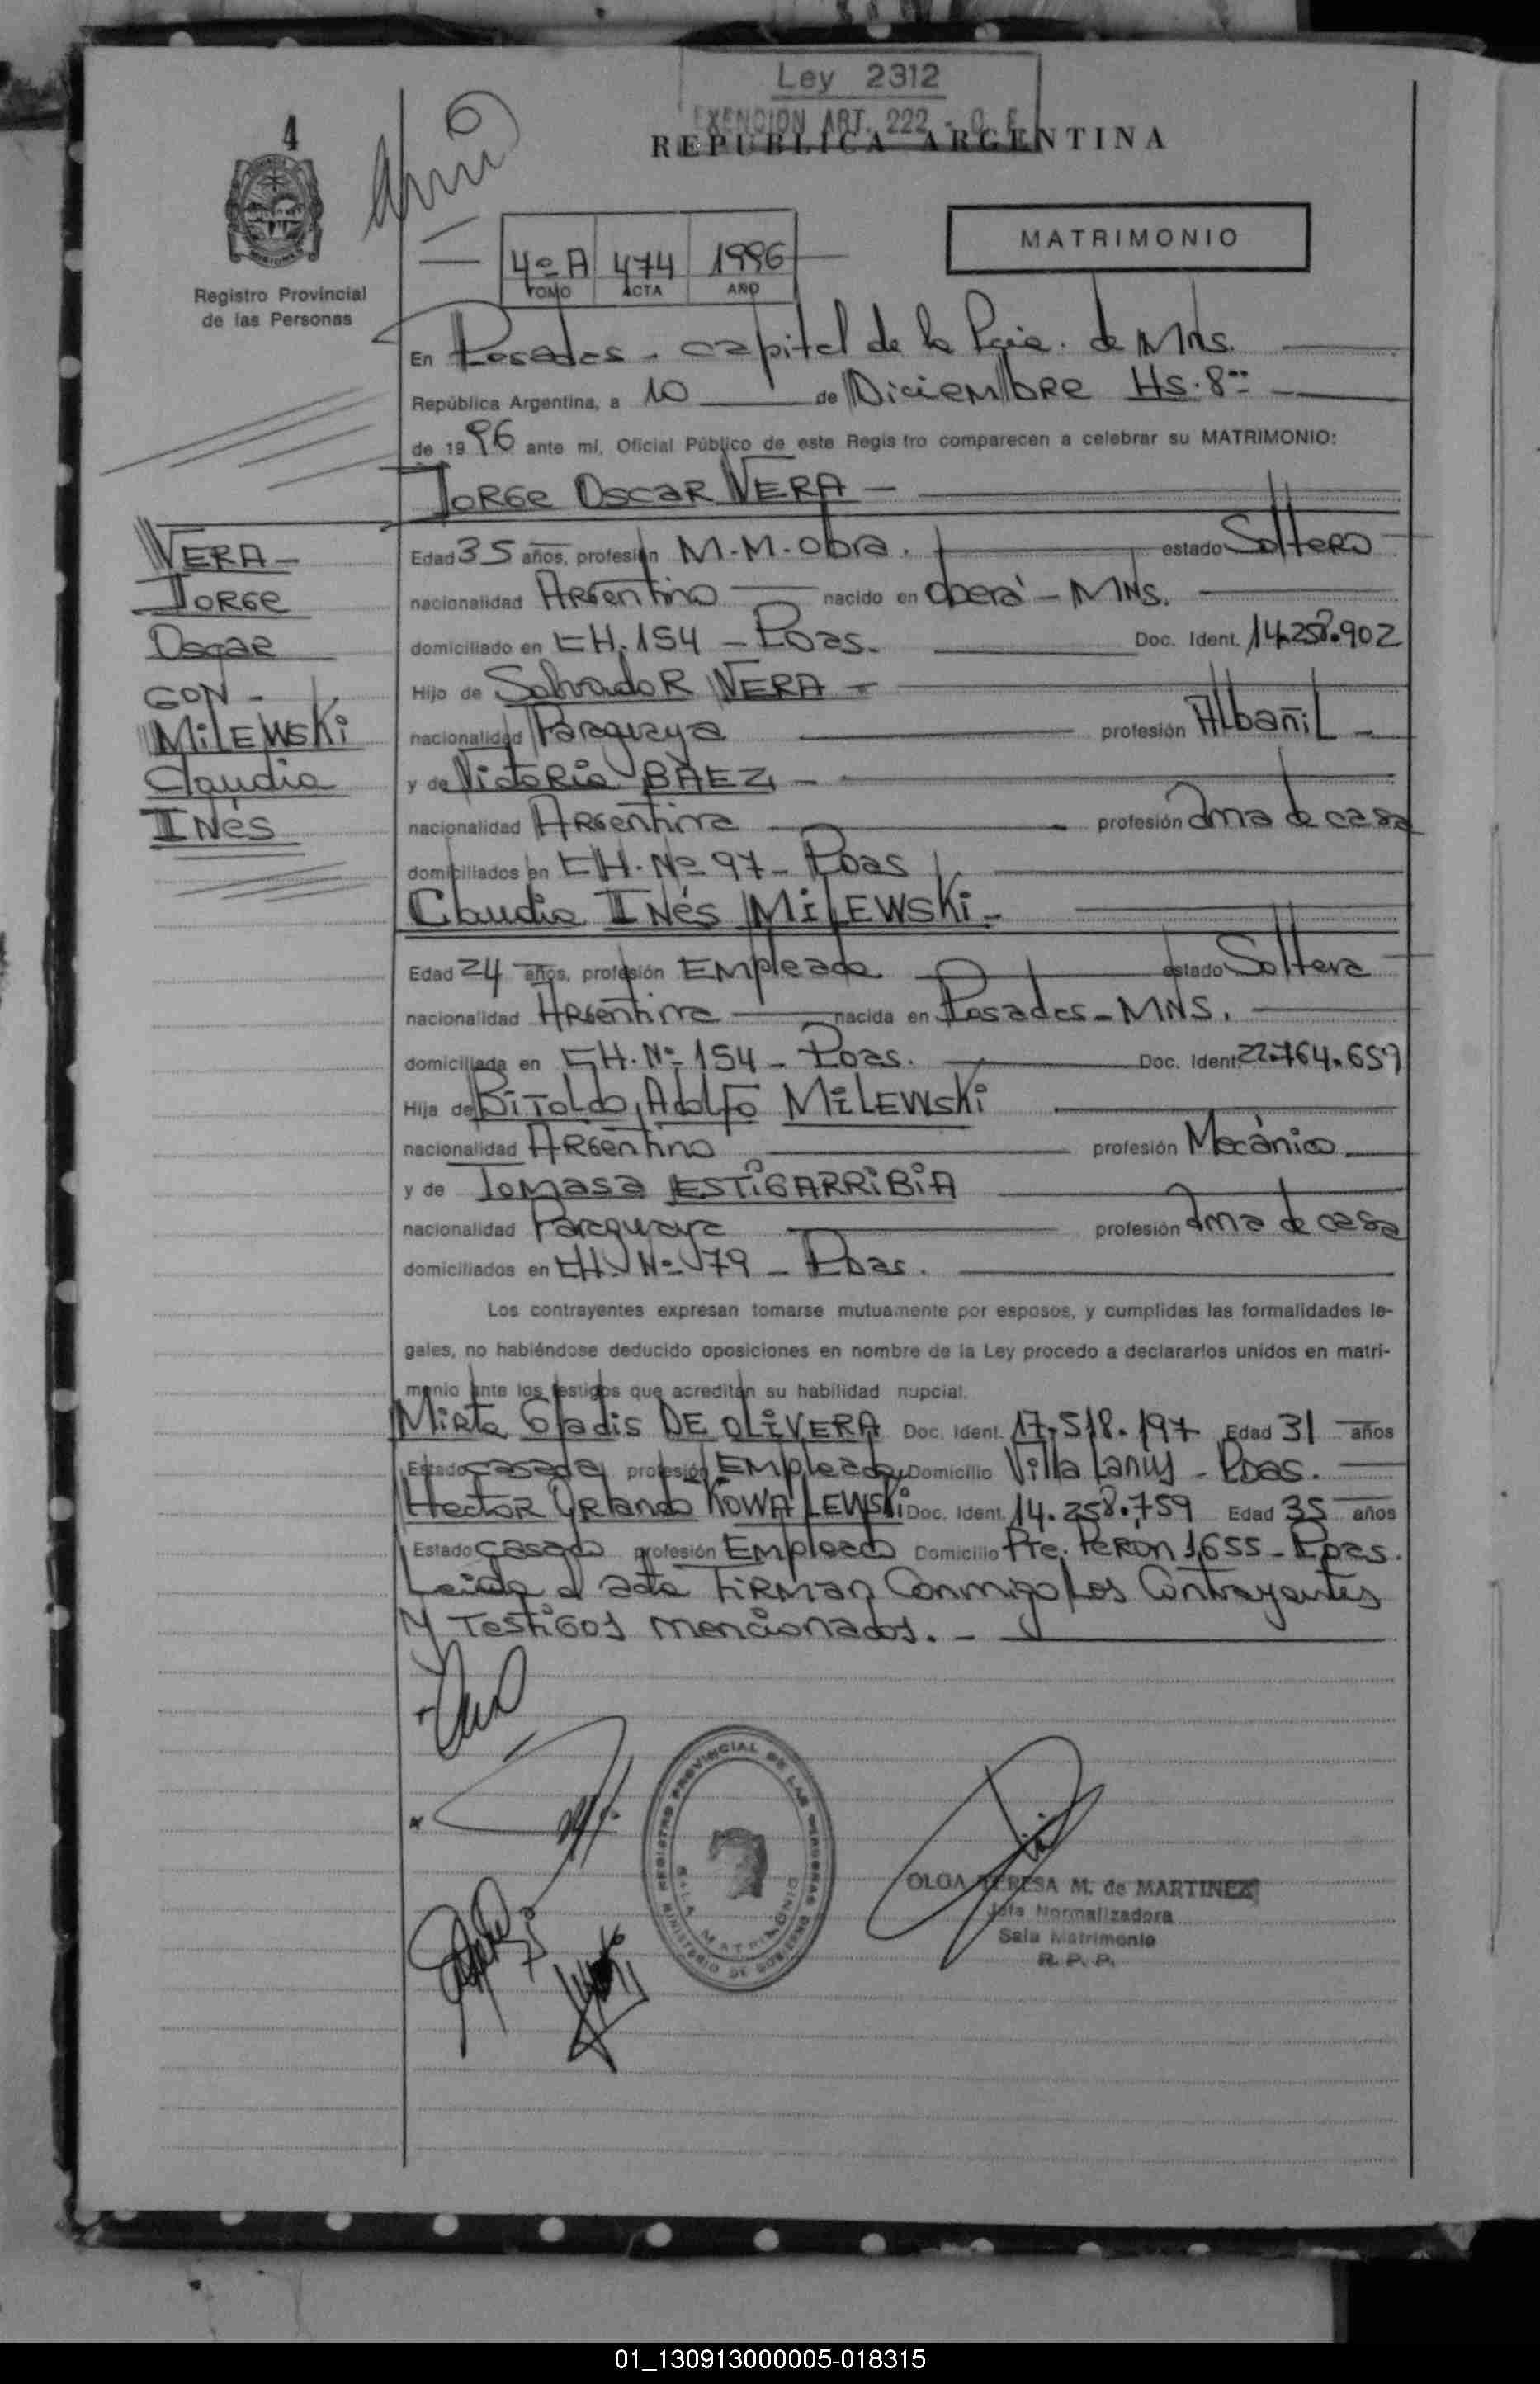 Ley 2312
EXENCION ART. 222 - C. F.
REPUBLICA ARGENTINA
4
Registro Provincial
de las Personas
MATRIMONIO
4º A 474 1996
TOMO ACTA AÑO
En Posadas - capital de la Pcia. de Mns.
República Argentina, a 10 de Diciembre Hs. 8
de 1996 ante mí, Oficial Público de este Registro comparecen a celebrar su MATRIMONIO:
Jorge Oscar VERA -
VERA -
Jorge
Oscar
CON -
MiLEWSKi
Claudia
INés
Edad 35 años, profesión M.M. Obra. estado Soltero
nacionalidad Argentino nacido en Oberá - MNS.
domiciliado en CH. 154 - Pdas. Doc. Ident. 14.258.902
Hijo de Salvador VERA -
nacionalidad Paraguaya profesión Albañil -
y de Victoria BAEZ -
nacionalidad Argentina profesión Ama de casa
domiciliados en CH. Nº 97 - Pdas
Claudia INés MiLEWSKi -
Edad 24 años, profesión Empleada estado Soltera
nacionalidad Argentina nacida en Posadas - MNS.
domiciliada en CH. Nº 154 - Pdas. Doc. Ident. 22.764.659
Hija de BiToldo Adolfo MiLEWSKi
nacionalidad Argentino profesión Mecánico
y de Tomasa ESTiGARRiBiA
nacionalidad Paraguaya profesión Ama de casa
domiciliados en CH. Nº 79 - Pdas.
Los contrayentes expresan tomarse mutuamente por esposos, y cumplidas las formalidades le-
gales, no habiéndose deducido oposiciones en nombre de la Ley procedo a declararlos unidos en matri-
monio ante los testigos que acreditan su habilidad nupcial.
Mirta Gladis DE OLiVERA Doc. Ident. 17.518.197 Edad 31 años
Estado casada profesión Empleada Domicilio Villa Lanús - Pdas.
Hector Orlando KOWALEWSKi Doc. Ident. 14.258.759 Edad 35 años
Estado casado profesión Empleado Domicilio Pte. Perón 1655 - Pdas.
Leida el acta firman Conmigo Los Contrayentes
y Testigos mencionados. -
REGISTRO PROVINCIAL DE LAS PERSONAS
SALA MATRIMONIO
MINISTERIO DE GOBIERNO
OLGA TERESA M. de MARTINEZ
Jefa Normalizadora
Sala Matrimonio
R. P. P.
01_130913000005-018315